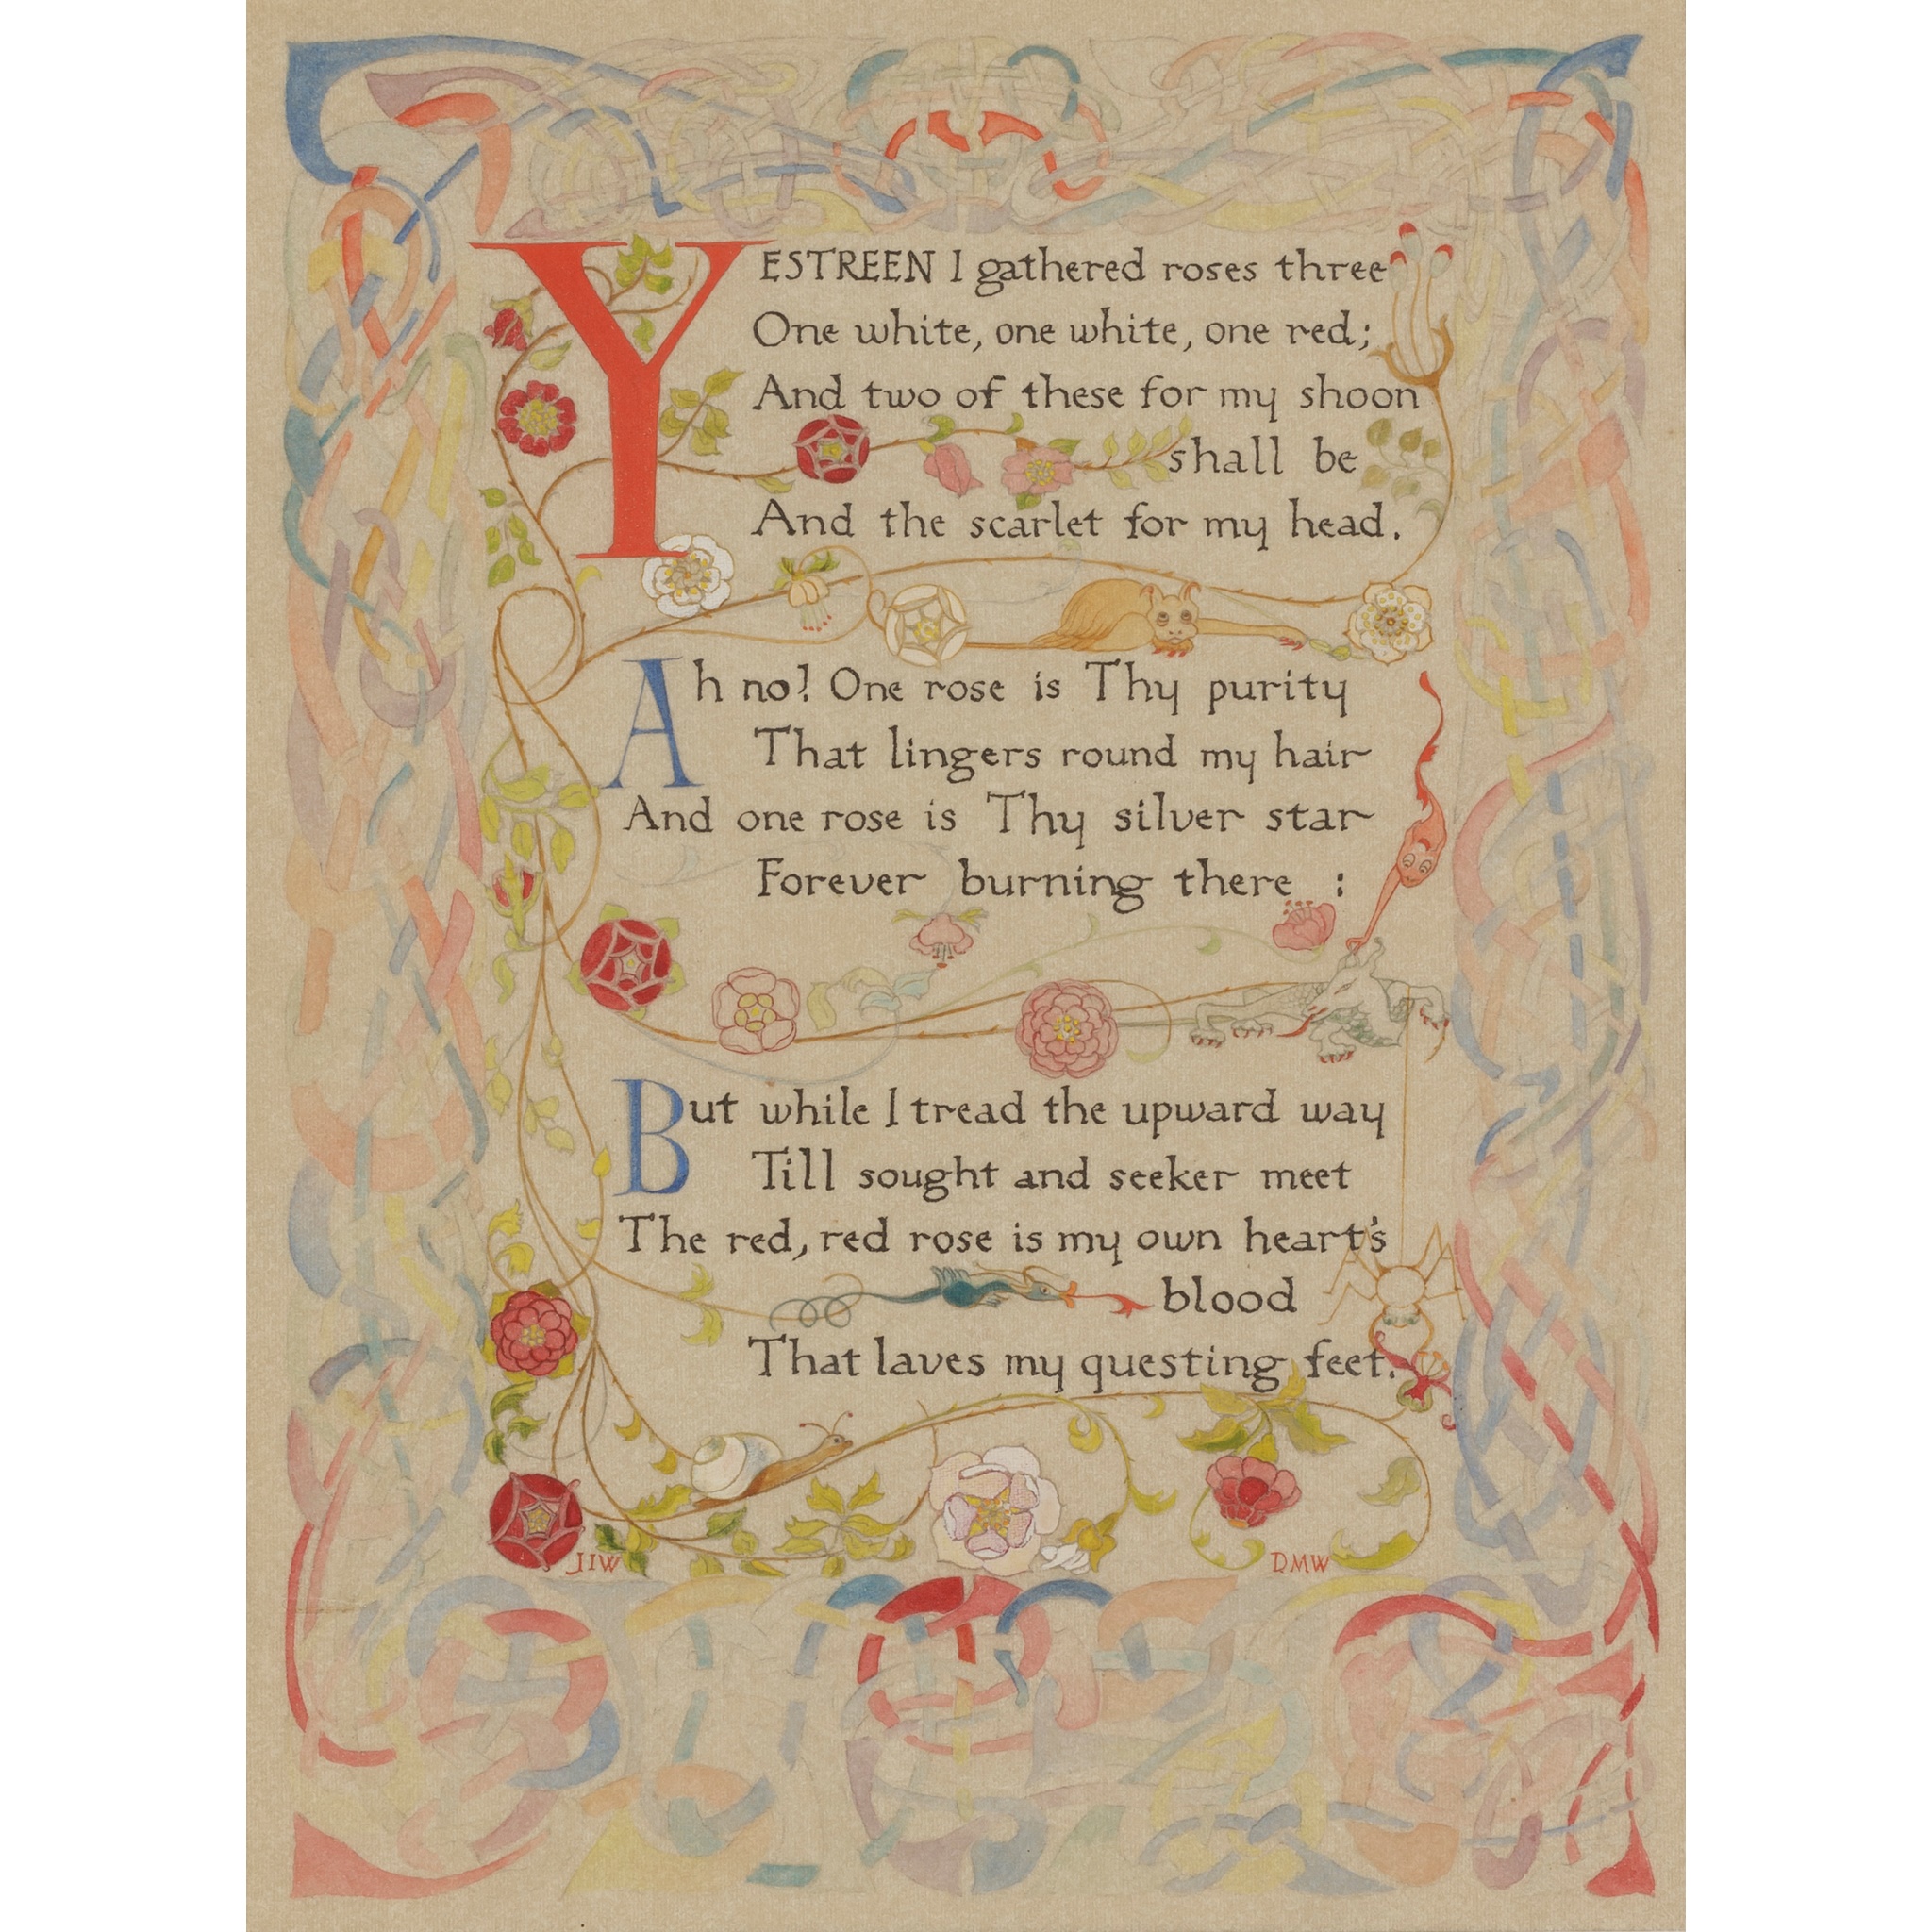 YESTREEN I gathered roses three
One white, one white, one red;
And two of these for my shoon
shall be
And the scarlet for my head.
Ah no! One rose is Thy purity
That lingers round my hair
And one rose is Thy silver star
Forever burning there :
But while I tread the upward way
Till sought and seeker meet
The red, red rose is my own heart's
blood
That laves my questing feet.
JIW
DMW